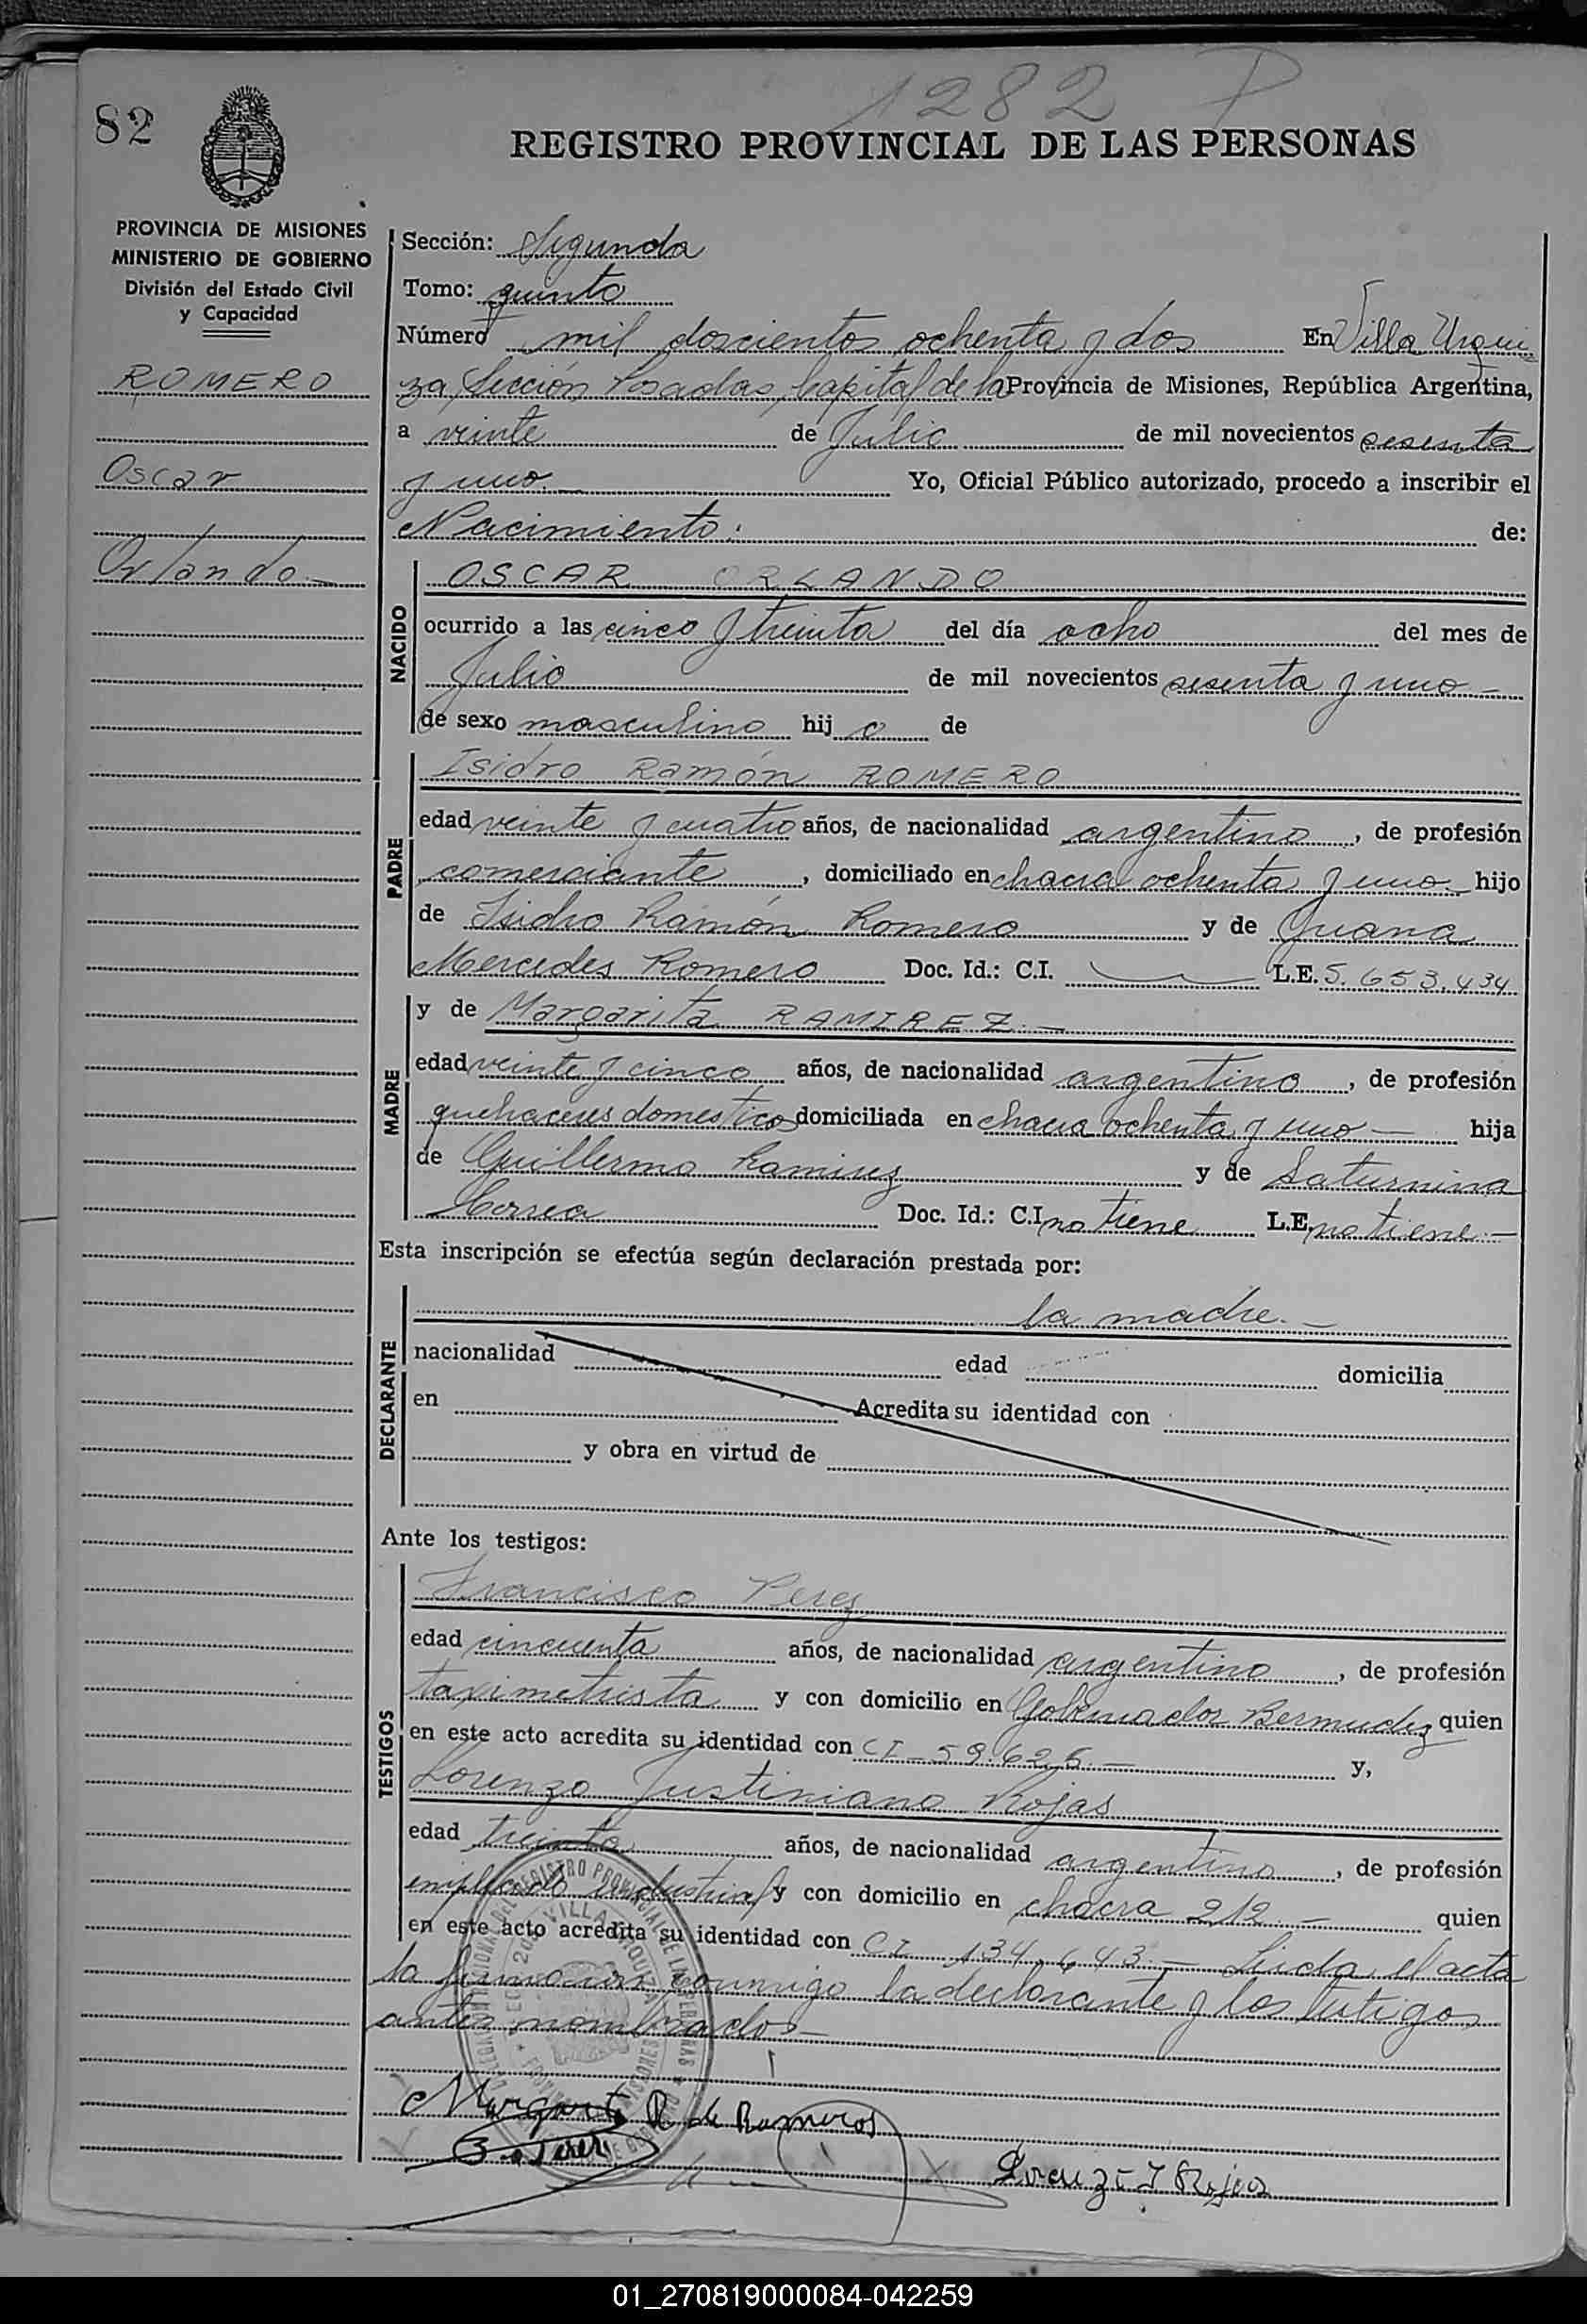 1282 P
82
REGISTRO PROVINCIAL DE LAS PERSONAS
PROVINCIA DE MISIONES
MINISTERIO DE GOBIERNO
División del Estado Civil
y Capacidad
ROMERO
Oscar
Orlando.-
Sección: Segunda
Tomo: quinto
Número mil doscientos ochenta y dos En Villa Urqui
za, Sección Posadas, Capital de la Provincia de Misiones, República Argentina,
a veinte de Julio de mil novecientos sesenta
y uno.- Yo, Oficial Público autorizado, procedo a inscribir el
Nacimiento: de:
NACIDO
OSCAR ORLANDO
ocurrido a las cinco y treinta del día ocho del mes de
Julio de mil novecientos sesenta y uno -
de sexo masculino hij o de
PADRE
Isidro Ramón ROMERO
edad veinte y cuatro años, de nacionalidad argentino, de profesión
comerciante, domiciliado en chacra ochenta y uno - hijo
de Isidro Ramón Romero y de Juana
Mercedes Romero Doc. Id.: C.I. L.E. 5.653.434
MADRE
y de Margarita RAMIREZ.-
edad veinte y cinco años, de nacionalidad argentina, de profesión
quehaceres domesticos domiciliada en chacra ochenta y uno - hija
de Guillermo Ramirez y de Saturnina
Correa Doc. Id.: C.I. no tiene L.E. no tiene.-
Esta inscripción se efectúa según declaración prestada por:
DECLARANTE
la madre.-
nacionalidad edad domicilia
en Acredita su identidad con
y obra en virtud de
Ante los testigos:
TESTIGOS
Francisco Perez
edad cincuenta años, de nacionalidad argentino, de profesión
taximetrista y con domicilio en Gobernador Bermudez quien
en este acto acredita su identidad con CI - 59.626.- y,
Lorenzo Justiniano Rojas
edad treinta años, de nacionalidad argentino, de profesión
empleado industrial y con domicilio en chacra 212.- quien
en este acto acredita su identidad con CI 134.643.- Leida el acta
la firmaron conmigo la declarante y los testigos
antes nombrados -
VILLA URQUIZA
Margarita R de Romero
Lorenzo J Rojas
01_270819000084-042259